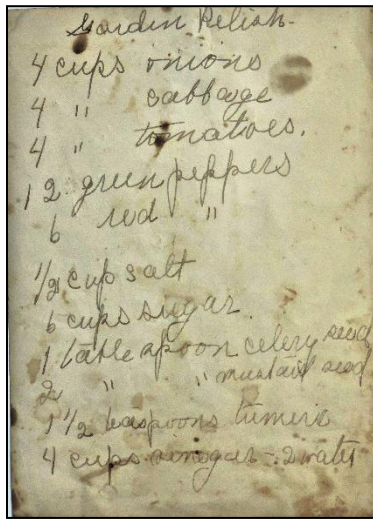 Garden Relish.
4 cups onions
4 " cabbage
4 " tomatoes.
12 green peppers
6 red "
1/2 cup salt
6 cups sugar
1 table spoon celery seed
2 " " mustard seed
1 1/2 teaspoons tumeric
4 cups vinegar - 2 water